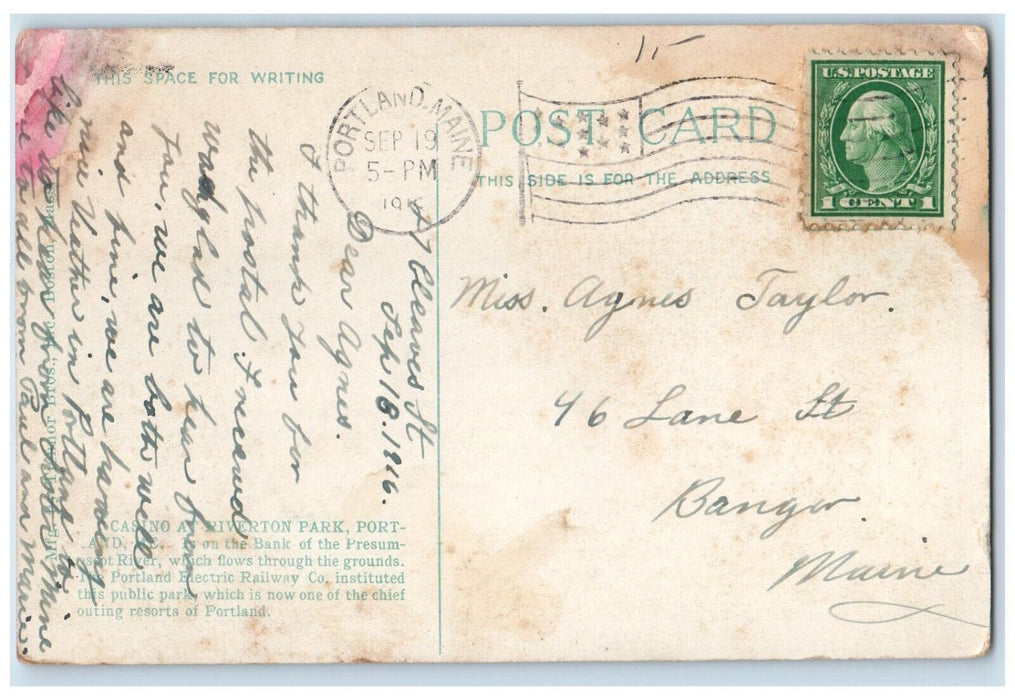 THIS SPACE FOR WRITING
PORTLAND, MAINE
SEP 19
5-PM
191
15
POST CARD
THIS SIDE IS FOR THE ADDRESS
U.S. POSTAGE
1 CENT 1
Miss. Agnes Taylor.
46 Lane St
Bangor.
Maine
47 Cleaves St
Sep 18. 1916.
Dear Agnes.
I thank you for
the postal I received
was glad to hear from
you, we are both well
and fine, we are having
nice weather in Portland
like to hear from
all from Paul and Mine.
CASINO AT RIVERTON PARK, PORT-
LAND, ME. is on the Bank of the Presum-
pscot River, which flows through the grounds.
The Portland Electric Railway Co. instituted
this public park, which is now one of the chief
outing resorts of Portland.
Bros., Inc. Boston, Mass.